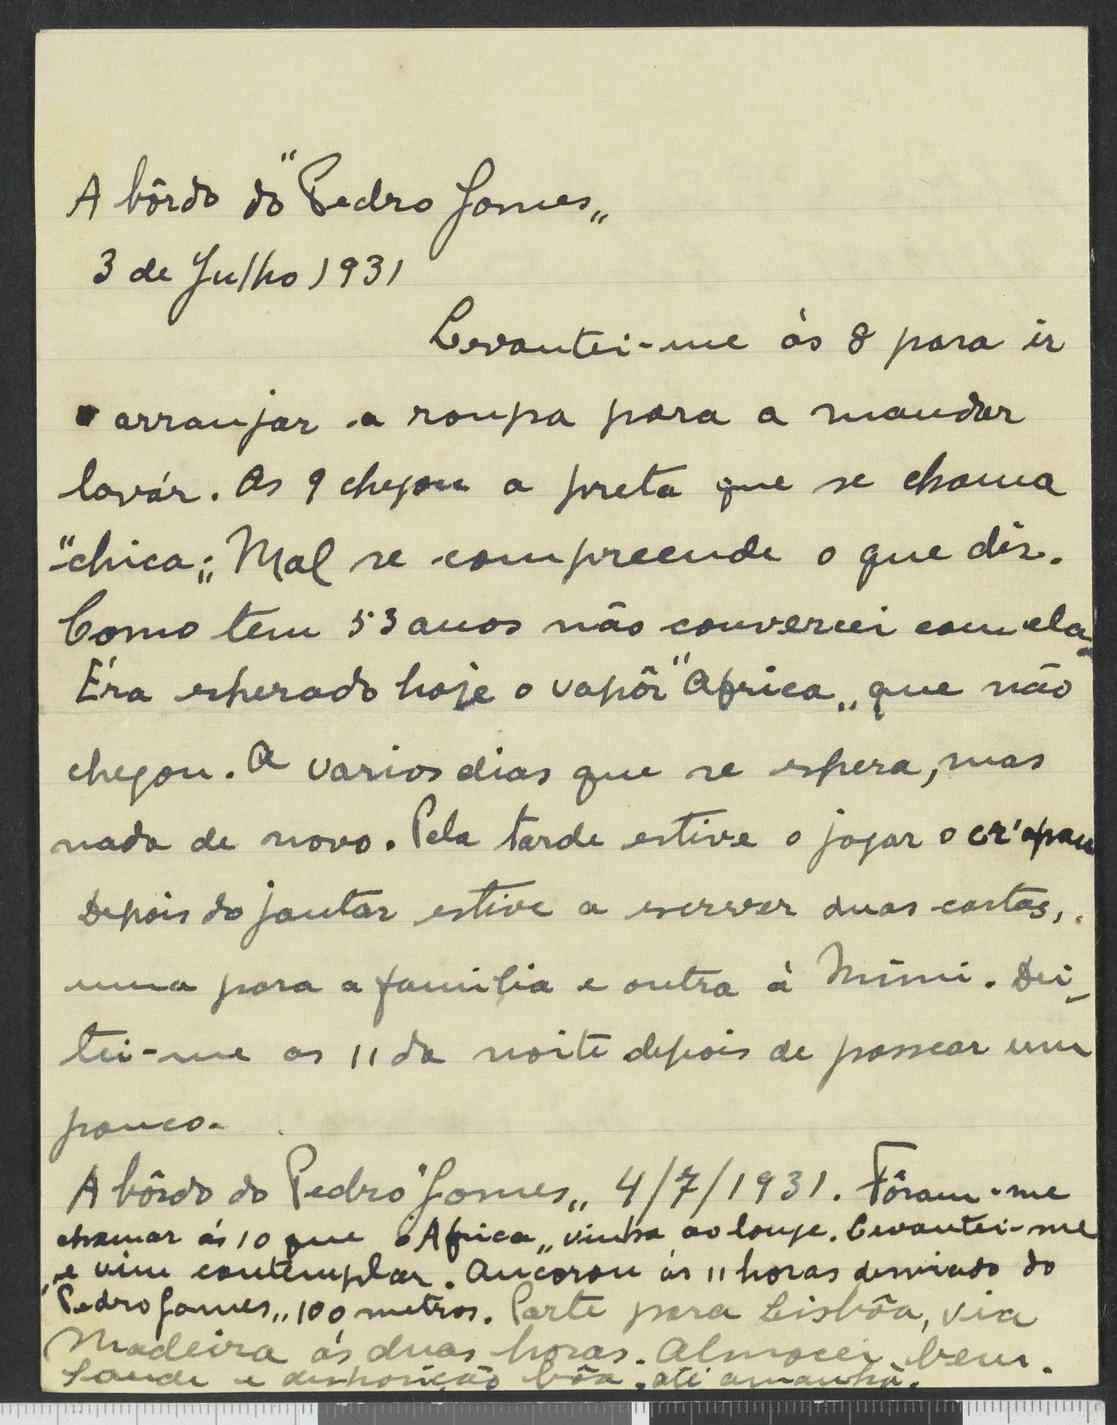 A bôrdo do "Pedro Gomes„
3 de Julho 1931
Levantei-me ás 8 para ir
arranjar a roupa para a mandar
lavár. As 9 chegou a preta que se chama
"chica„; Mal se compreende o que diz.
Como tem 53 anos não conversei com ela.
Éra esperado hoje o vapôr "Africa„ que não
chegou. A varios dias que se espera, mas
nada de novo. Pela tarde estive a jogar o
Depois do jantar estive a escrever duas cartas,
uma para a familia e outra à Mimi. Dei-
tei-me as 11 da noite depois de passear um
pouco.
A bôrdo do Pedro "Gomes„ 4/7/1931. Fôram-me
chamar ás 10 que o "Africa„ vinha ao lonje. Levantei-me
e vim contemplar. Ancorou ás 11 horas desviado do
"Pedro Gomes„ 100 metros. Parte para Lisbôa, via
Madeira ás duas horas. Almocei bem.
Saude e disposição bôa. até amanhã.